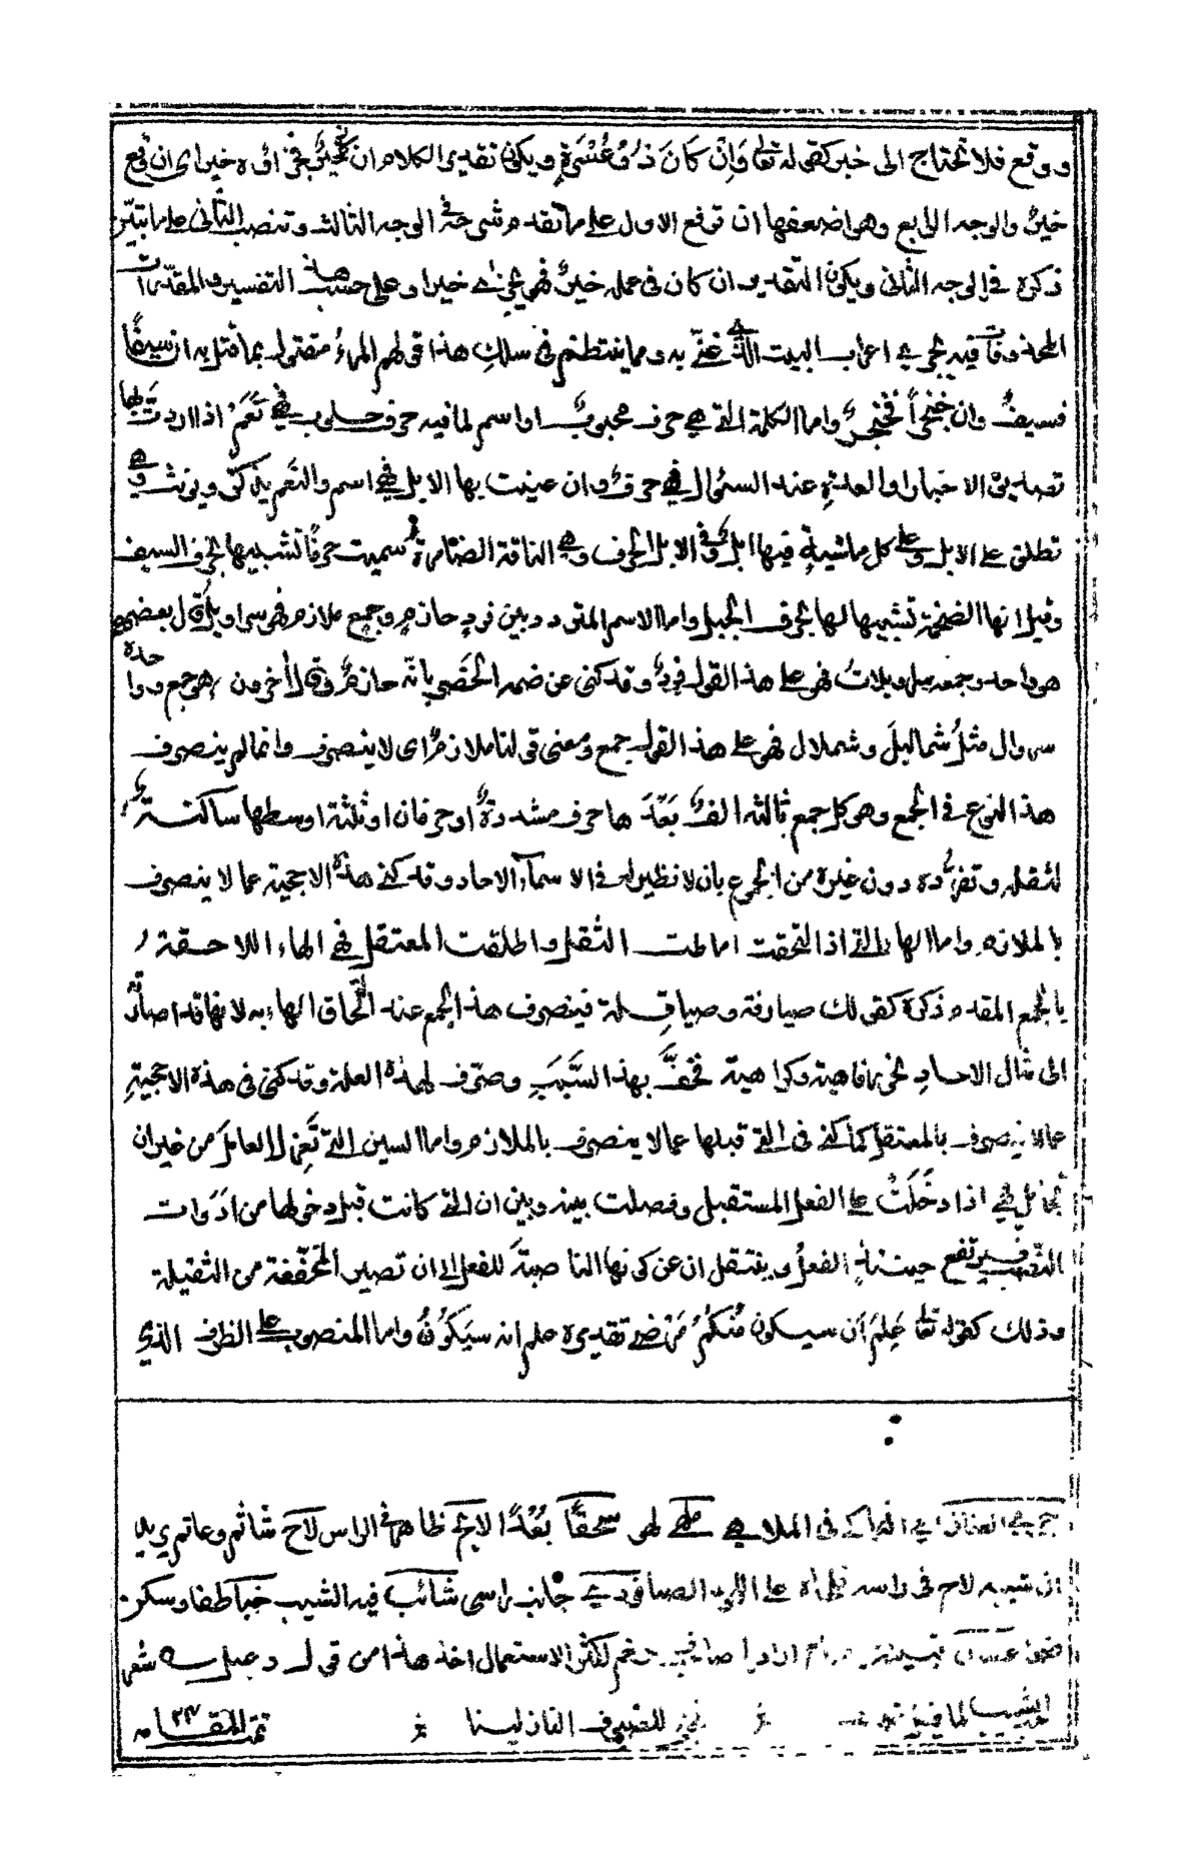 ووقع فلا تحتاج الى خبر كقوله تعا وَاِنْ كَانَ ذُوْ عُسْرَةٍ ويكون تقدير الكلام ان خيرٌ فجزاؤه خير اى ان وقع
خيرٌ والوجه الرابع وهو اضعفها ان ترفع الاول على ما تقدم شرحه فى الوجه الثالث وتنصب الثانى على ما تبيّن
ذكره فى الوجه الثانى ويكون التقدير ان كان فى عمله خيرٌ فهو يجزٰى خيرا وعلى حسب هذا التفسير والمقدّرات
المحذوفات فيه يجرى اعراب البيت الذى غنّى به ومما ينتظم فى سلك هذا قولهم المرءُ مقتول بما قتل به ان سيفًا
فسيفٌ وان خنجراً فخنجرٌ واما الكلمة التى هى حرف محبوبٌ او اسم لما فيه حرف حلوب فهى نَعَمْ اذا اردتَ بها
تصديق الاخبار او العدة عند السئوال فهى حرفٌ وان عنيت بها الابل فهى اسم والنعم يذكّر ويؤنث وهى
تطلق على الابل وعلى كل ماشيةٍ فيها ابلٌ وفى الابل الحرف وهى الناقة الضامرة سميت حرفًا تشبيها بحرف السيف
وقيل انها الضخمة تشبيها لها بحرف الجبل واما الاسم المتردد بين فردٍ حازمٍ وجمع ملازم فهو سراويل قال بعضهم
هو واحد وجمعه سراويلات فهو على هذا القول فردٌ وقد كنى عن ضمه الخصر بانّه حازمٌ وقال أخرون هو جمع وواحده
سروال مثلُ شماليلَ وشملال فهو على هذا القول جمع ومعنى قولنا ملازمٌ اى لا ينصرف وانما لم ينصرف
هذا النوع فى الجمع وهو كل جمع ثالثه الفٌ بَعْدَ ها حرف مشددةٌ او حرفان او ثلثة اوسطها ساكنةٌ
لثقله وتفرُّده دون غيره من الجموع بان لا نظير له فى الاسمآء الاحاد وقد كنى هذه الاحجية عما لا ينصرف
بالملازم واما الهاء التى اذا التحقت اماطت الثقل واطلقت المعتقل فهى الهاء اللاحقة
بالجمع المقدم ذكره كقولك صيارفة وصياقلة فينصرف هذا الجمع عند التحاق الهاء به لانها قد اصارتْ
الى مثال الاحاد نحو رفاهية وكراهية فخفَّ بهذا السَّبَبِ وصرّف لهذه العلة وقد كنى فى هذه الاحجية
عما لا ينصرف بالمعتقل كما كنى فى التى قبلها عما لا ينصرف بالملازم واما السين التى تَعزل العاملَ من غير ان
تجامل فهى اذا دخَلَتْ على الفعل المستقبل وفصلت بينه وبين ان التى كانت قبل دخولها من اَدَوات
النّصب فيرتفع حينئذٍ الفعلُ وينتقل ان عن كونها الناصبةَ للفعل الى ان تصير المخفّفة من الثقيلة
وذلك كقوله تعا عَلِمَ اَن سيكون مِنْكُمْ مَرْضٰى تقديره علم انه سيَكُوْنُ واما المنصوب على الظرف الذى
فى الملاهى طحى لهى سُحقًا بُعْداً لاح ظاهر فى الراس لاَحَ شاتم وعاتم يريد
ان شيبه لاح فى راسه جانب راسى شائب فيه الشيب خبا طفا وسكن
لكثرة الاستعمال اخذ هذا من قول دعبل شعر
تمت المقامه ٢٤